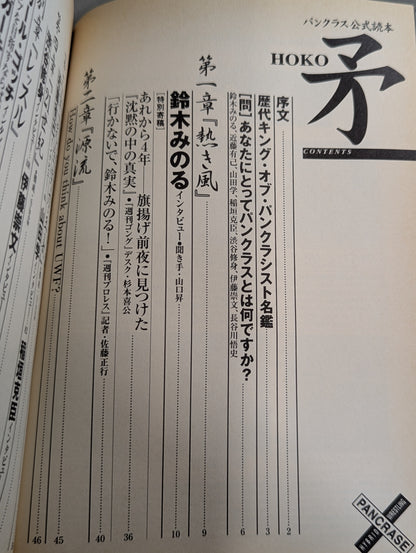 パンクラス公式読本
矛
HOKO
CONTENTS
序文 2
歴代キング・オブ・パンクラシスト名鑑 3
【問】あなたにとってパンクラスとは何ですか? 6
鈴木みのる、近藤有己、山田学、稲垣克臣、渋谷修身、伊藤崇文、長谷川悟史
第一章『熱き風』 9
鈴木みのる インタビュー●聞き手・山口昇 10
[特別寄稿]
あれから4年――旗揚げ前夜に見つけた
『沈黙の中の真実』●『週刊ゴング』デスク・杉本喜公 36
「行かないで、鈴木みのる!」●『週刊プロレス』記者・佐藤正行 40
第二章『源流』 45
How do you think about UWF? 46
伊藤崇文
稲垣克臣
インタビュー
PANCRASE
HYBRID
WRESTLING